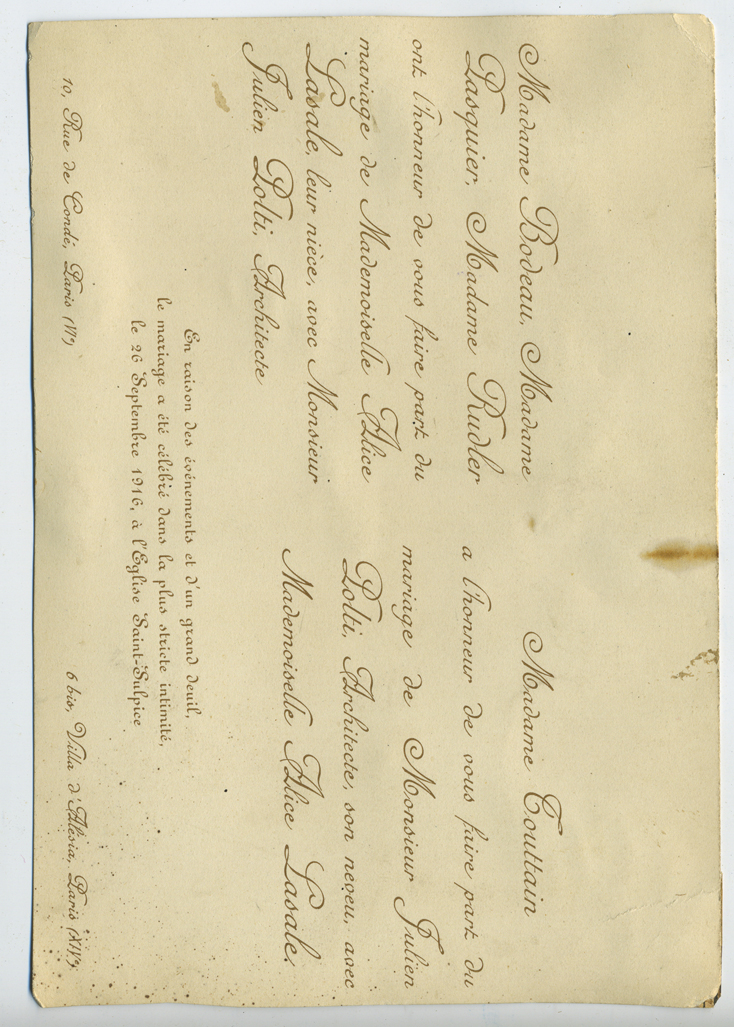 Madame Bodeau, Madame
Pasquier, Madame Rudler
ont l'honneur de vous faire part du
mariage de Mademoiselle Alice
Lasale, leur nièce, avec Monsieur
Julien Polti, Architecte
Madame Touttain
a l'honneur de vous faire part du
mariage de Monsieur Julien
Polti, Architecte, son neveu, avec
Mademoiselle Alice Lasale.
En raison des événements et d'un grand deuil,
le mariage a été célébré dans la plus stricte intimité,
le 26 Septembre 1916, à l'Eglise Saint-Sulpice
10, Rue de Condé, Paris (VIe)
6 bis, Villa d'Alésia, Paris (XIVe)